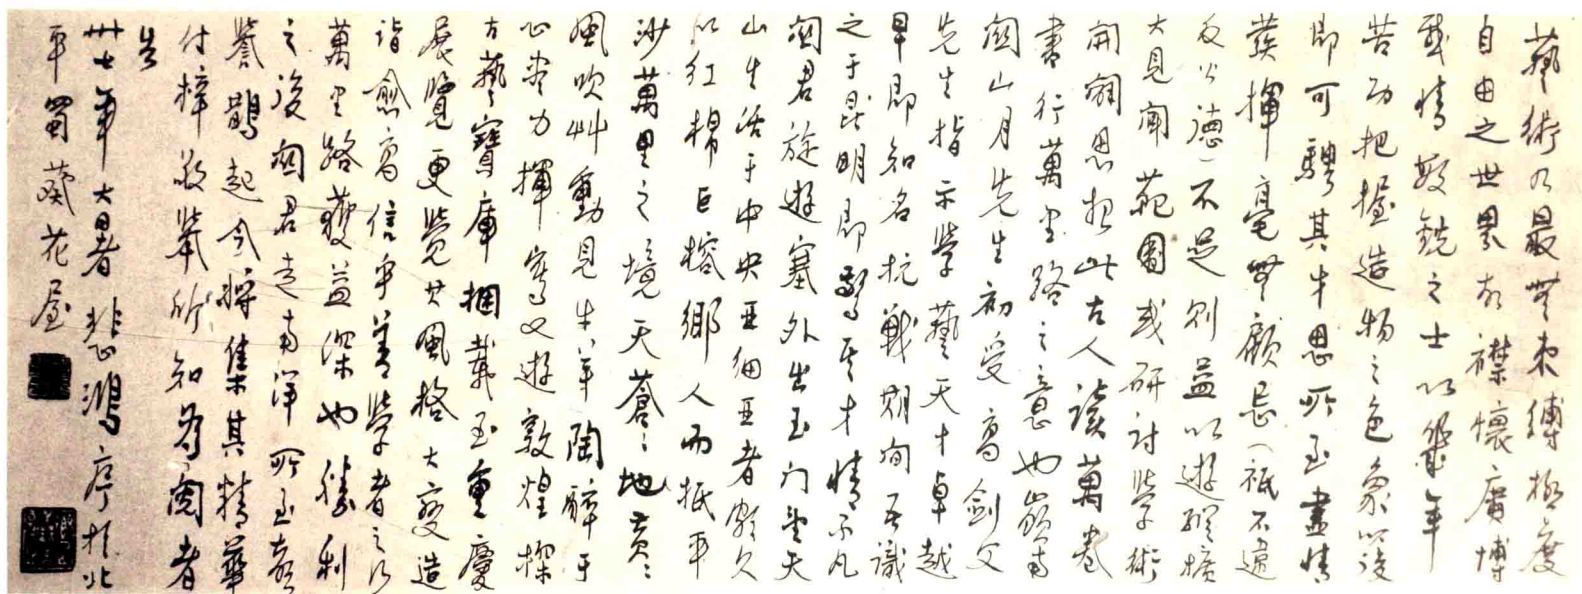 藝術乃最無束縛極度
自由之世界故襟懷廣博
感情敏銳之士以幾年
苦功把握造物之色象以後
即可騁其才思所至盡情
發揮毫無顧忌（祇不違
反公德）不足則益以遊蹤擴
大見聞範圍或研討學術
開闢思想此古人讀萬卷
書行萬里路之意也嶺南
關山月先生初受高劍父
先生指示學藝天才卓越
早即知名抗戰期間吾識
之于昆明即驚其才情不凡
關君旋遊塞外出玉门望天
山生活于中央亞細亞者頗久
以紅棉巨榕鄉人而抵平
沙萬里之境天蒼：地黄：
風吹艸動見牛羊陶醉于
心盡力揮寫又遊敦煌探
古藝寶庫捆載至重慶
展覽更覺其風格大變造
詣愈高信乎善學者之行
萬里路獲益深也勝利
之後關君走南洋所至奇
譽鵲起今將集其精華
付梓敬舉所知為閱者
告
卅七年大暑悲鴻序於北
平蜀葵花屋